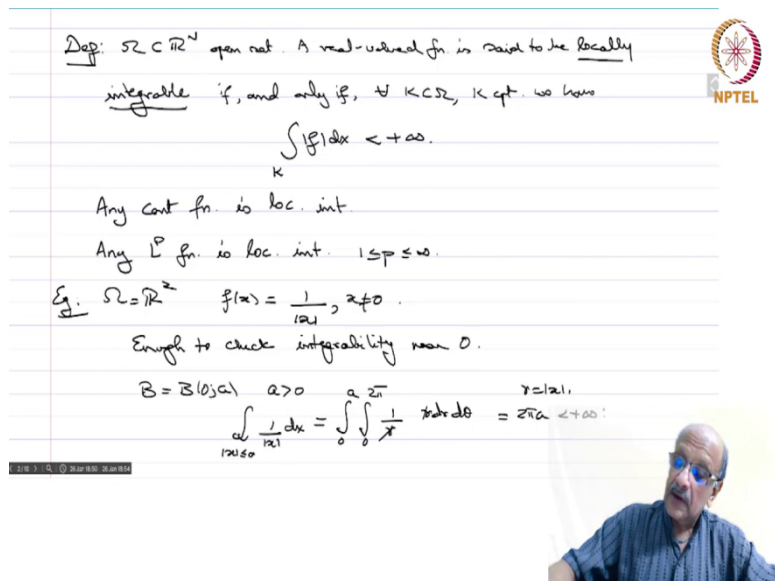 Def: Ω ⊂ ℝᴺ open set. A real-valued fn. is said to be locally
integrable if, and only if, ∀ K⊂Ω, K cpt. we have
∫_K |f|dx < +∞.
Any cont fn. is loc. int.
Any Lᵖ fn. is loc. int. 1≤p≤∞.
Eg. Ω=ℝ² f(x) = 1/|x|, x≠0.
Enough to check integrability near 0.
B = B(0;a) a>0 r=|x|,
∫_{|x|≤a} 1/|x| dx = ∫_0^a ∫_0^{2π} 1/r r dr dθ = 2πa <+∞.
NPTEL
2/10 26 Jan 18:50 26 Jan 18:54